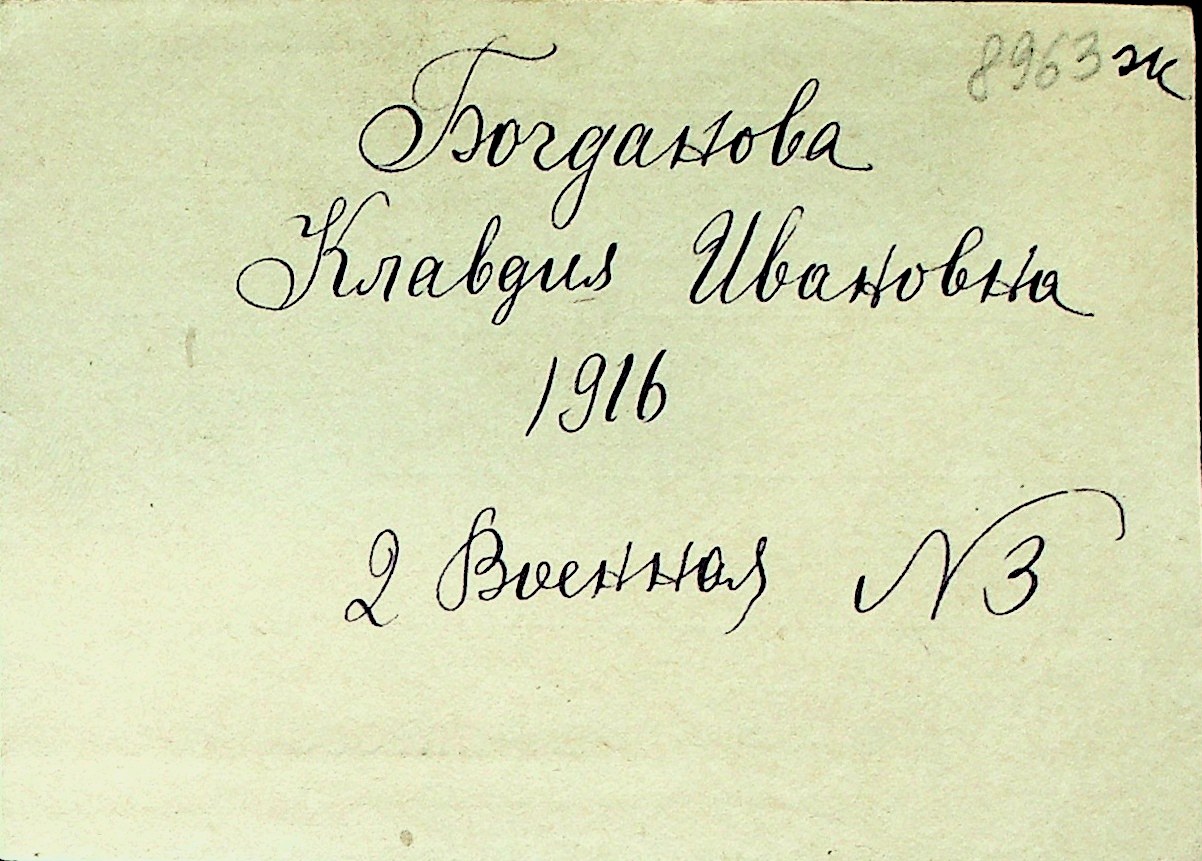 8963 ж
Богданова
Клавдия Ивановна
1916
2 Военная N3